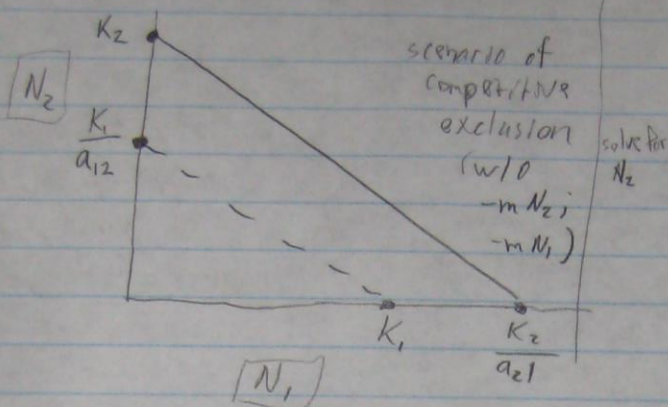 K2
N2
K1
a12
scenario of
competitive
exclusion
(w/o
-mN2;
-mN1)
solve for
N2
K1
K2
a21
N1